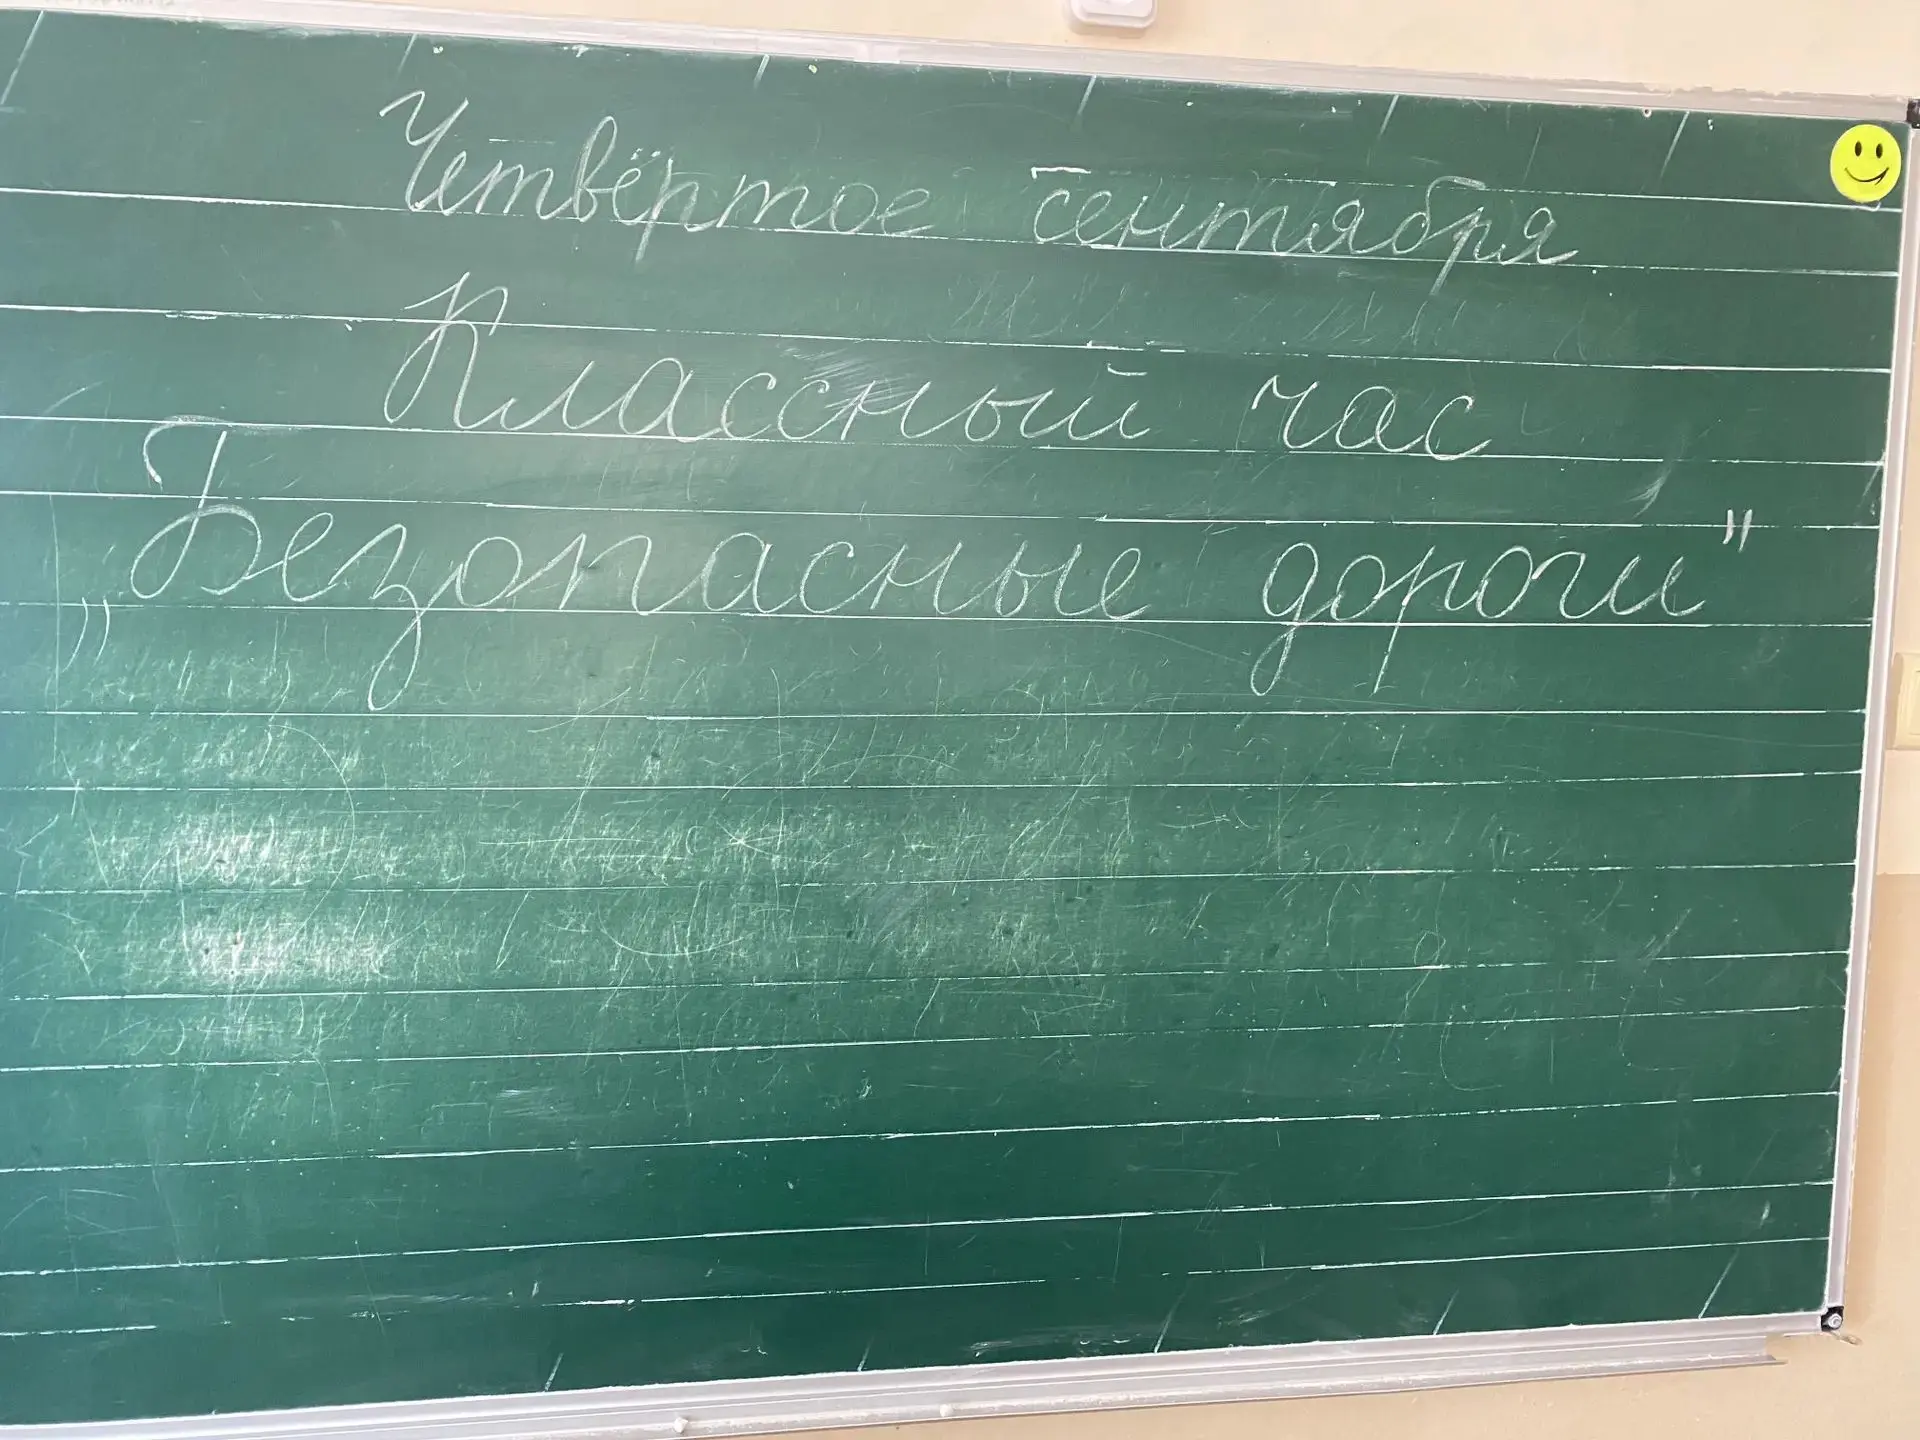 Четвёртое сентября
Классный час
„Безопасные дороги"